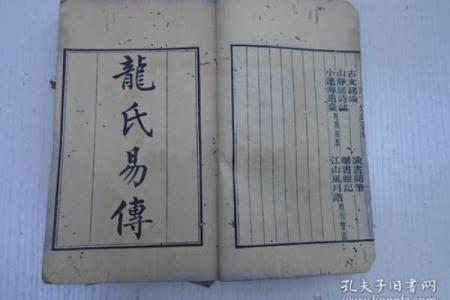 古文緒論
論書隨筆
山靜居詩話
曝書雜記
小蓬海遺
江山風月譜
龍氏易傳
孔夫子旧书网